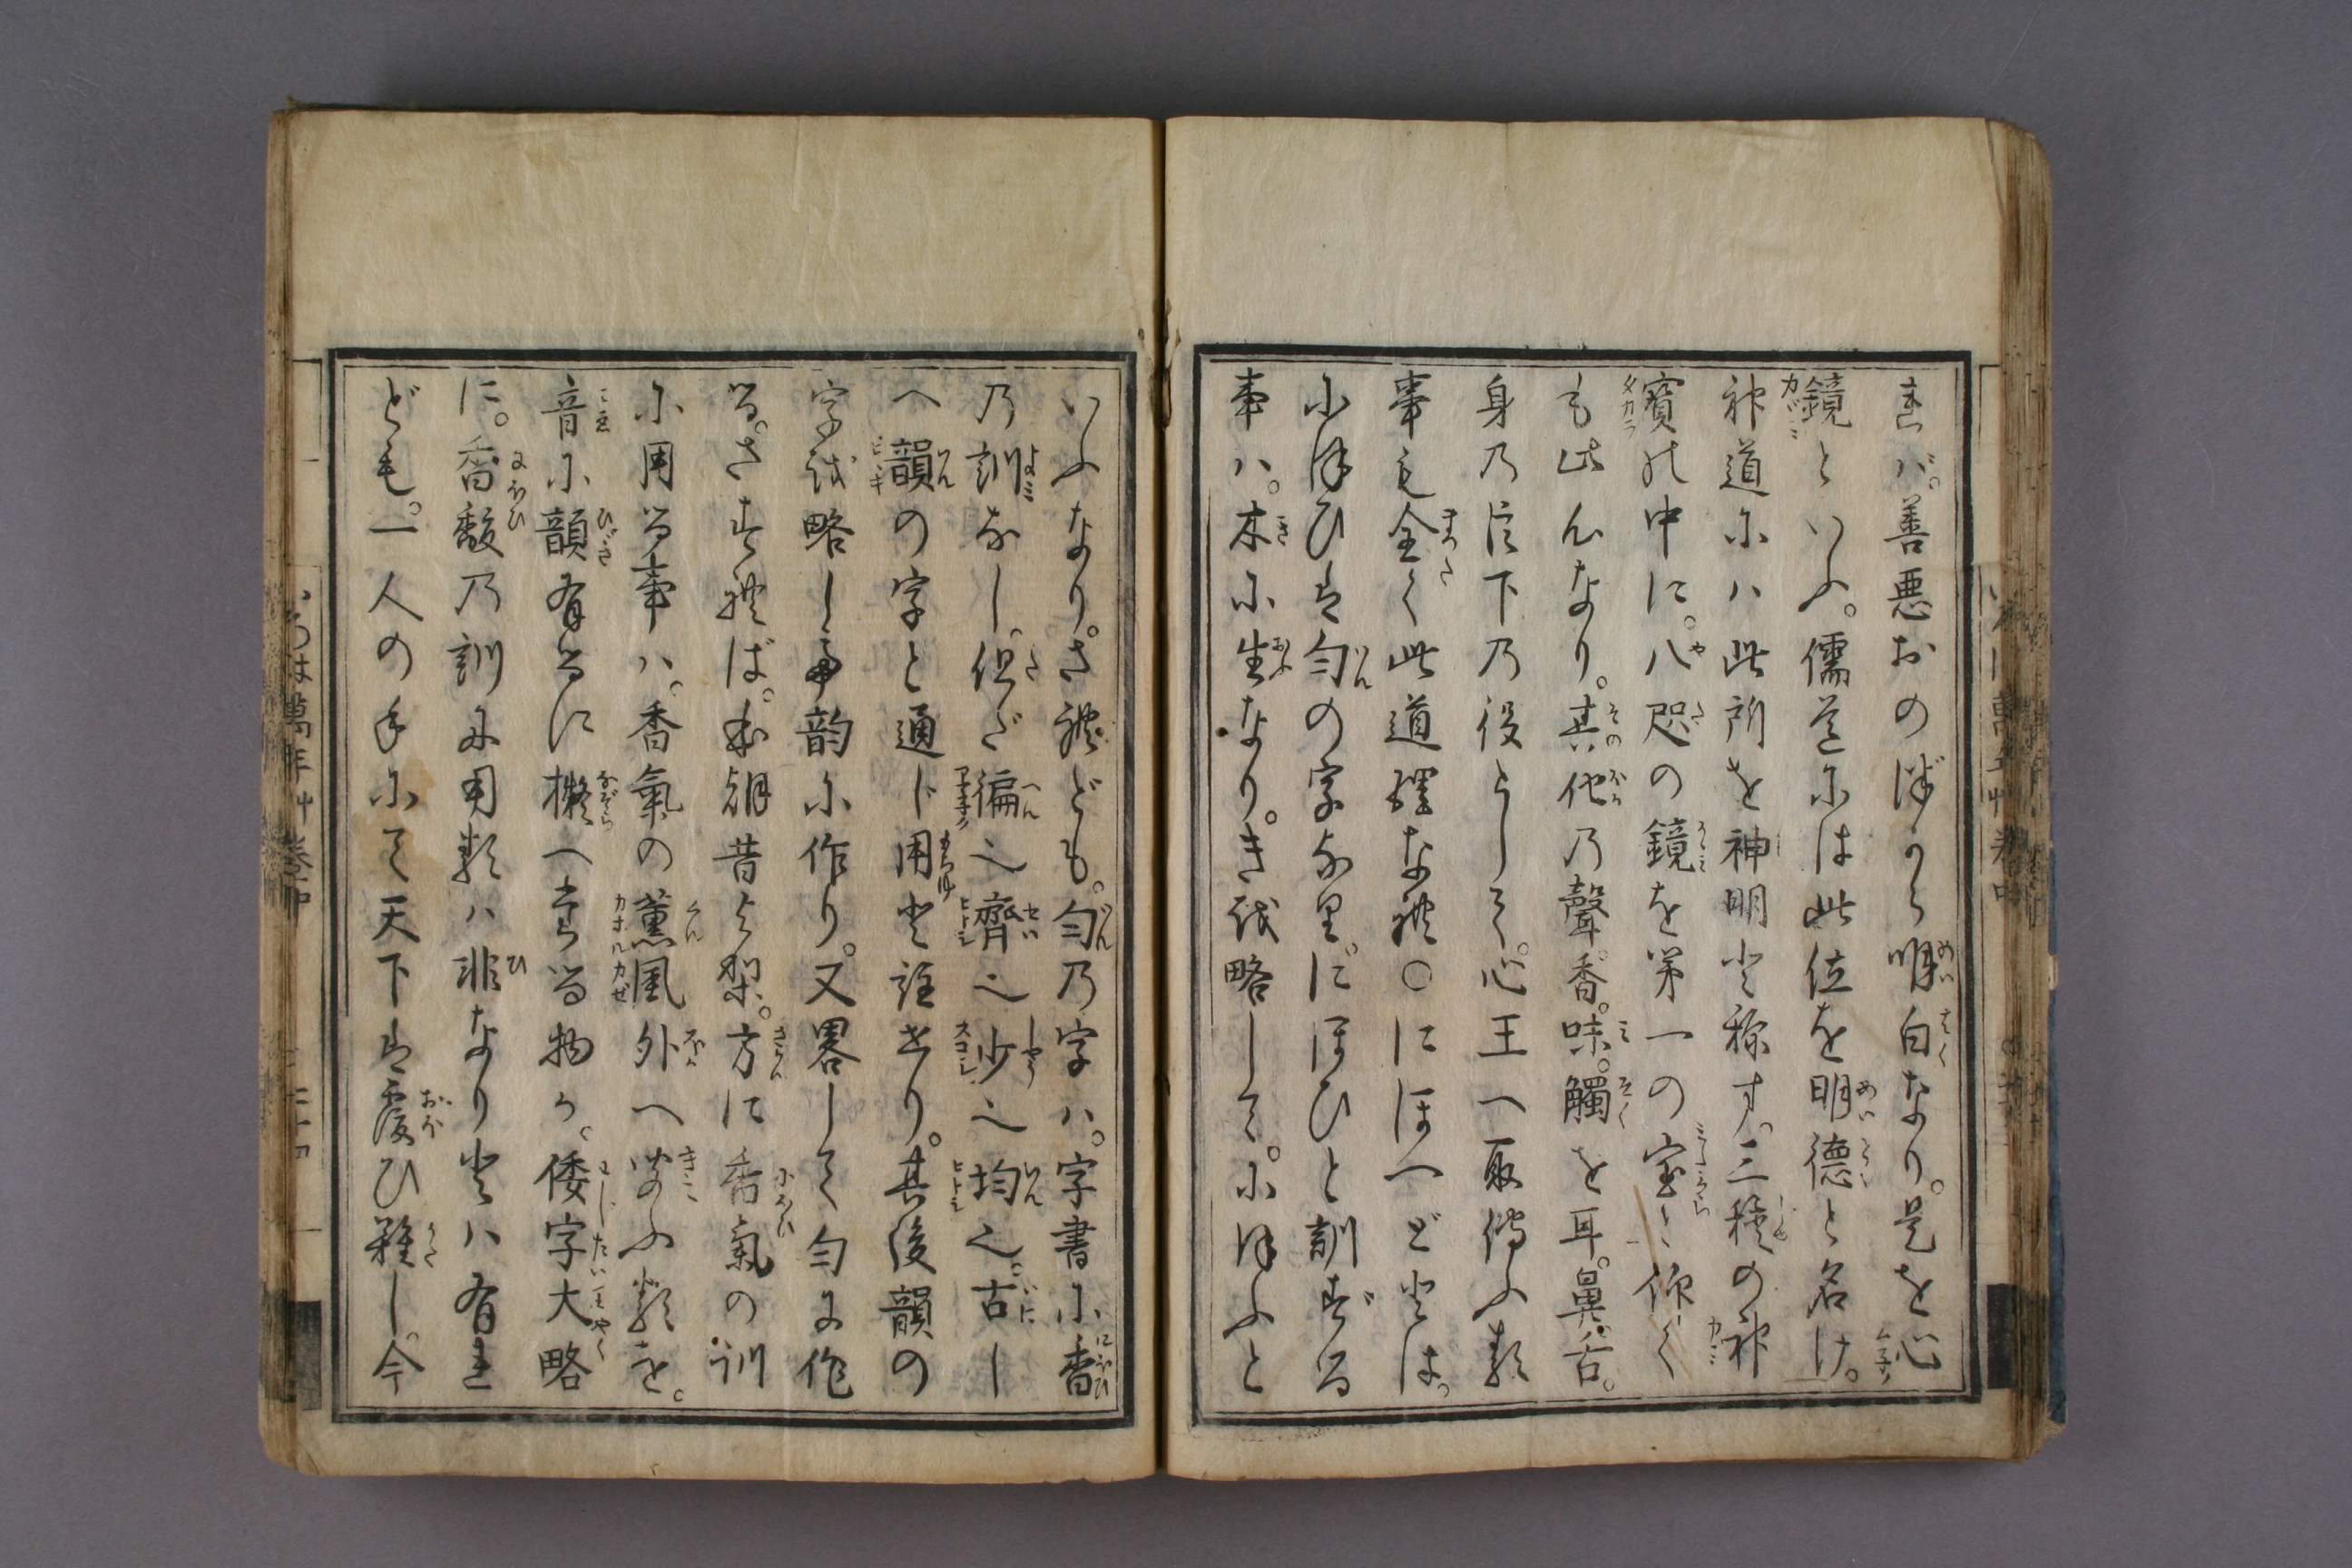 れバ。善悪おのづから明白なり。是を心
鏡といふ。儒道には此位を明徳と名け。
神道にハ此所を神明と称す。三種の神
寳の中に。八咫の鏡を第一の宝と仰く
も此心なり。其他乃聲。香。味。觸を耳。鼻。舌。
身乃臣下乃役として。心王へ取傳ふ類
事も全く此道理なれ〇にほへどとは。
にほひは匂の字なり。にほひと訓ずる
事ハ。木に生なり。きを略して。にほふと
いふなり。されども。匂乃字ハ。字書に香
乃訓なし。但だ徧也齊也少也均也。古し
へ韻の字と通じ用と註せり。其後韻の
字を略して韵に作り。又畧して匂に作
る。されば。本朝昔より。方に香氣の訓
に用る事ハ。香氣の薫風外へ聞ふ類を。
音に韻有るに擬へたる物か。倭字大略
に。香馥乃訓に用類ハ非なりとハ有れ
ども。一人の手にて天下は覆ひ難し。今
いろは萬年艸 巻中